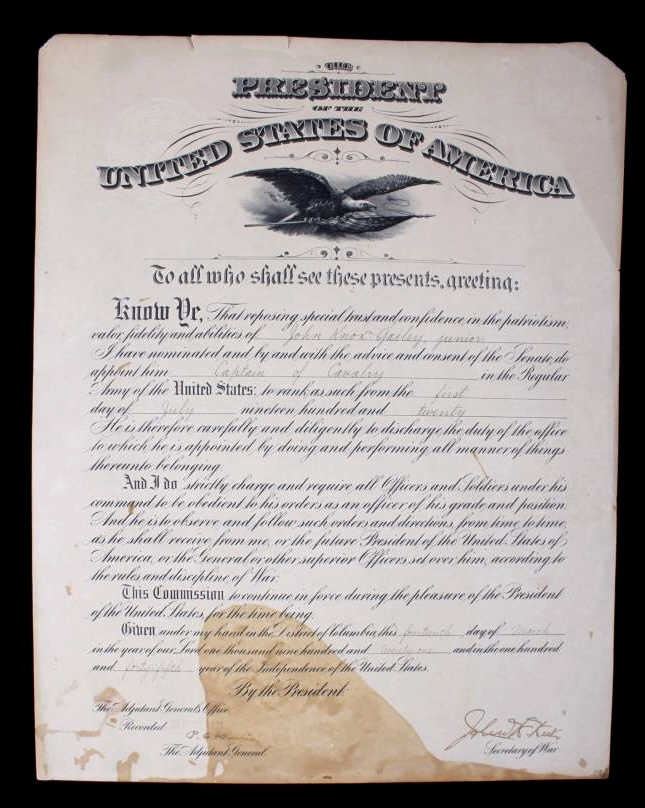 THE
PRESIDENT
OF THE
UNITED STATES OF AMERICA
To all who shall see these presents, greeting:
Know Ye, That reposing special trust and confidence in the patriotism,
valor, fidelity and abilities of John Knox junior
I have nominated and by and with the advice and consent of the Senate, do
appoint him Captain of Cavalry in the Regular
Army of the United States: to rank as such from the first
day of July nineteen hundred and twenty
He is therefore carefully and diligently to discharge the duty of the office
to which he is appointed by doing and performing all manner of things
thereunto belonging.
And I do strictly charge and require all Officers and Soldiers under his
command to be obedient to his orders as an officer of his grade and position.
And he is to observe and follow such orders and directions, from time to time,
as he shall receive from me, or the future President of the United States of
America, or the General or other superior Officers set over him, according to
the rules and discipline of War.
This Commission to continue in force during the pleasure of the President
of the United States, for the time being.
Given under my hand in the District of Columbia, this fourteenth day of March
in the year of our Lord one thousand nine hundred and twenty one and in the one hundred
and forty-fifth year of the Independence of the United States.
By the President:
The Adjutant General's Office
Recorded
The Adjutant General.
Secretary of War